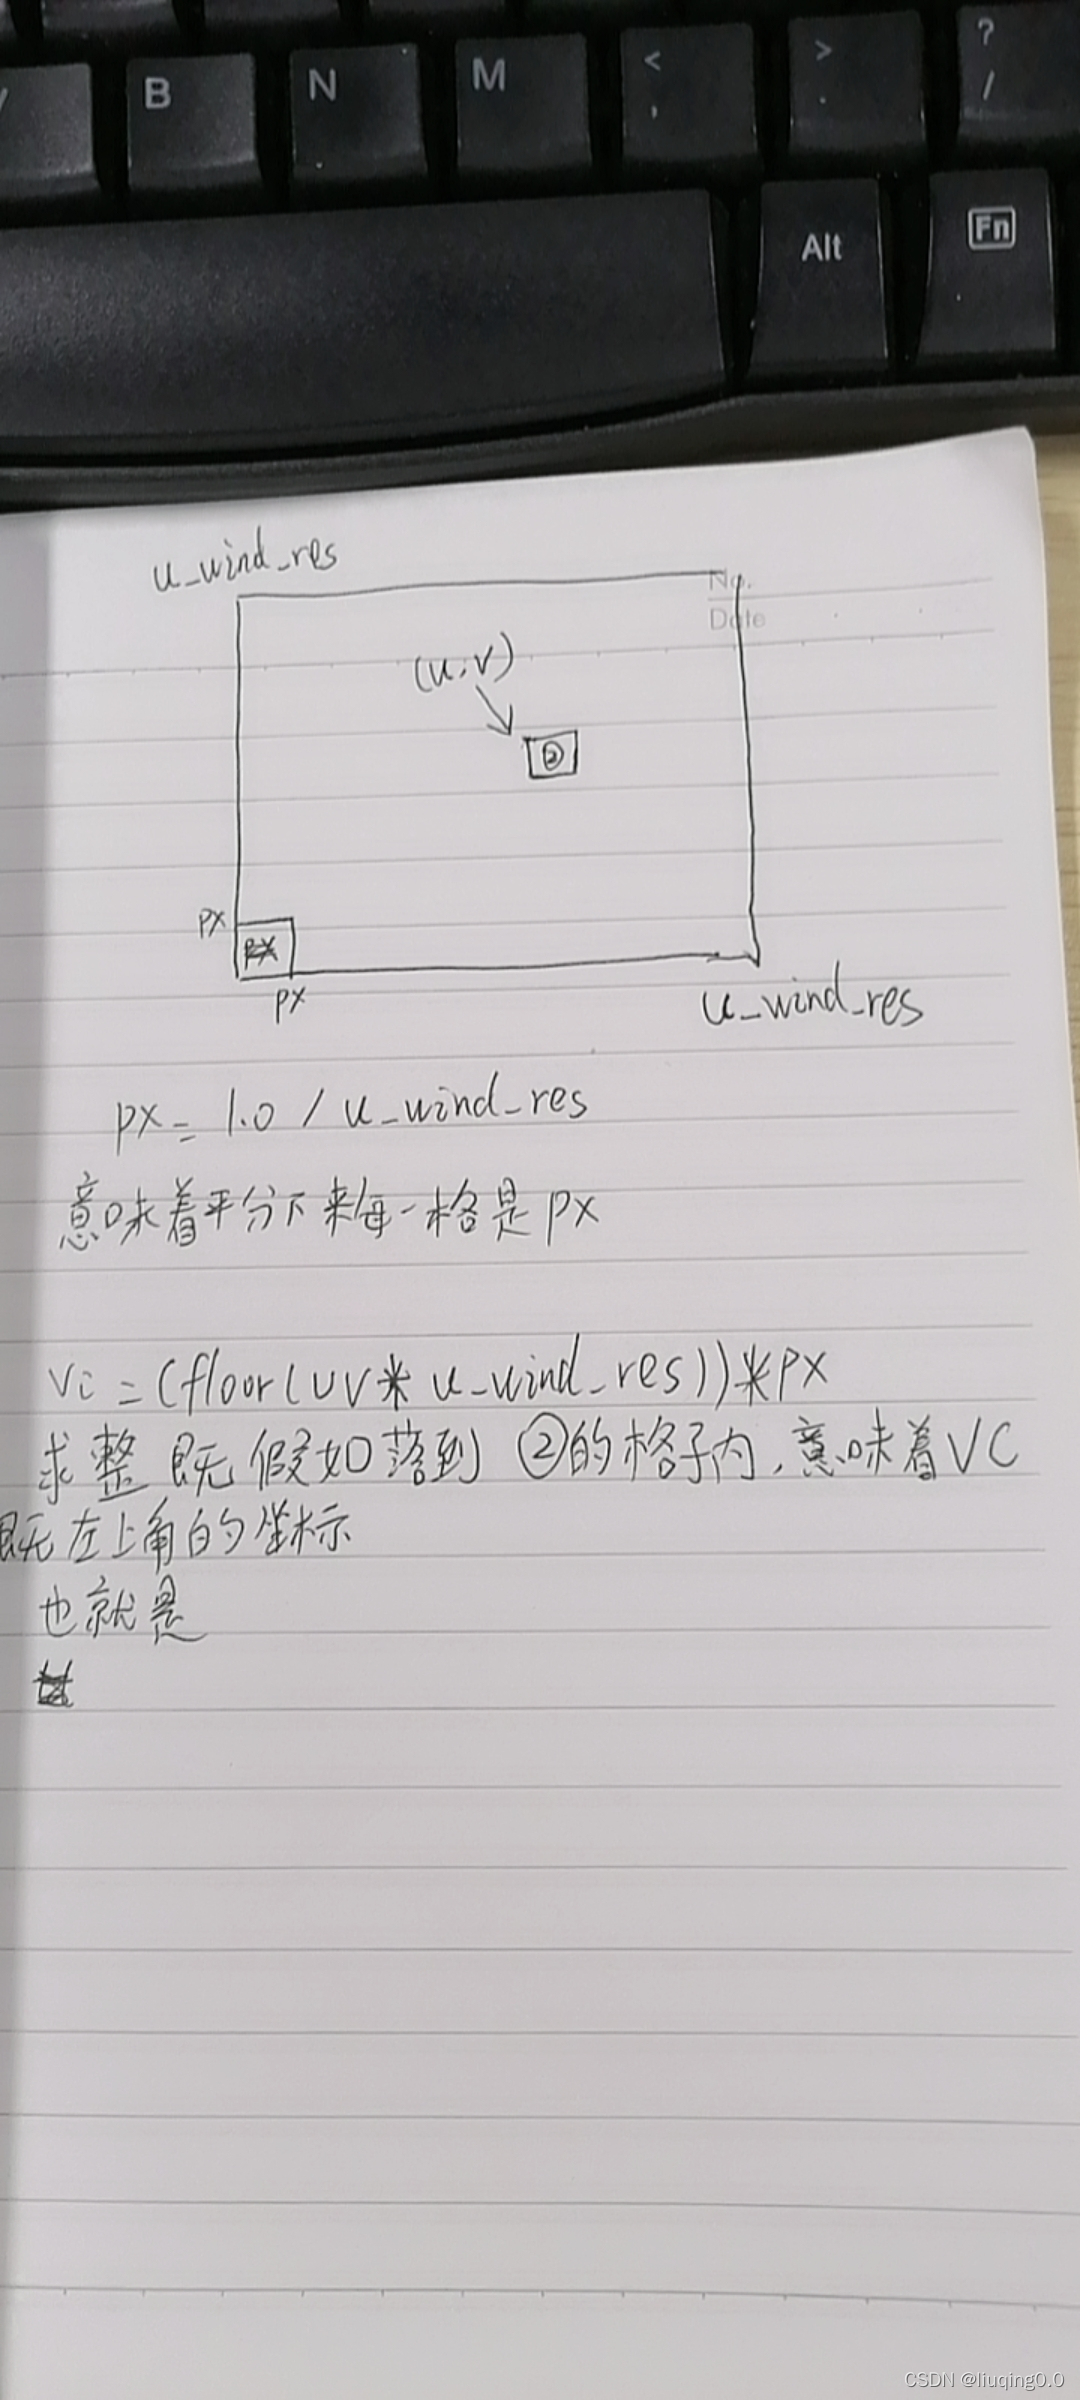 B N M < , > . ? /
Alt Fn
u_wind_res
No.
Date
(u,v)
②
px
px
px
u_wind_res
px = 1.0 / u_wind_res
意味着平分下来每一格是px
vc = (floor(uv* u_wind_res))*px
求整 既 假如落到 ②的格子内,意味着VC
既左上角的坐标
也就是
CSDN @liuqing0.0